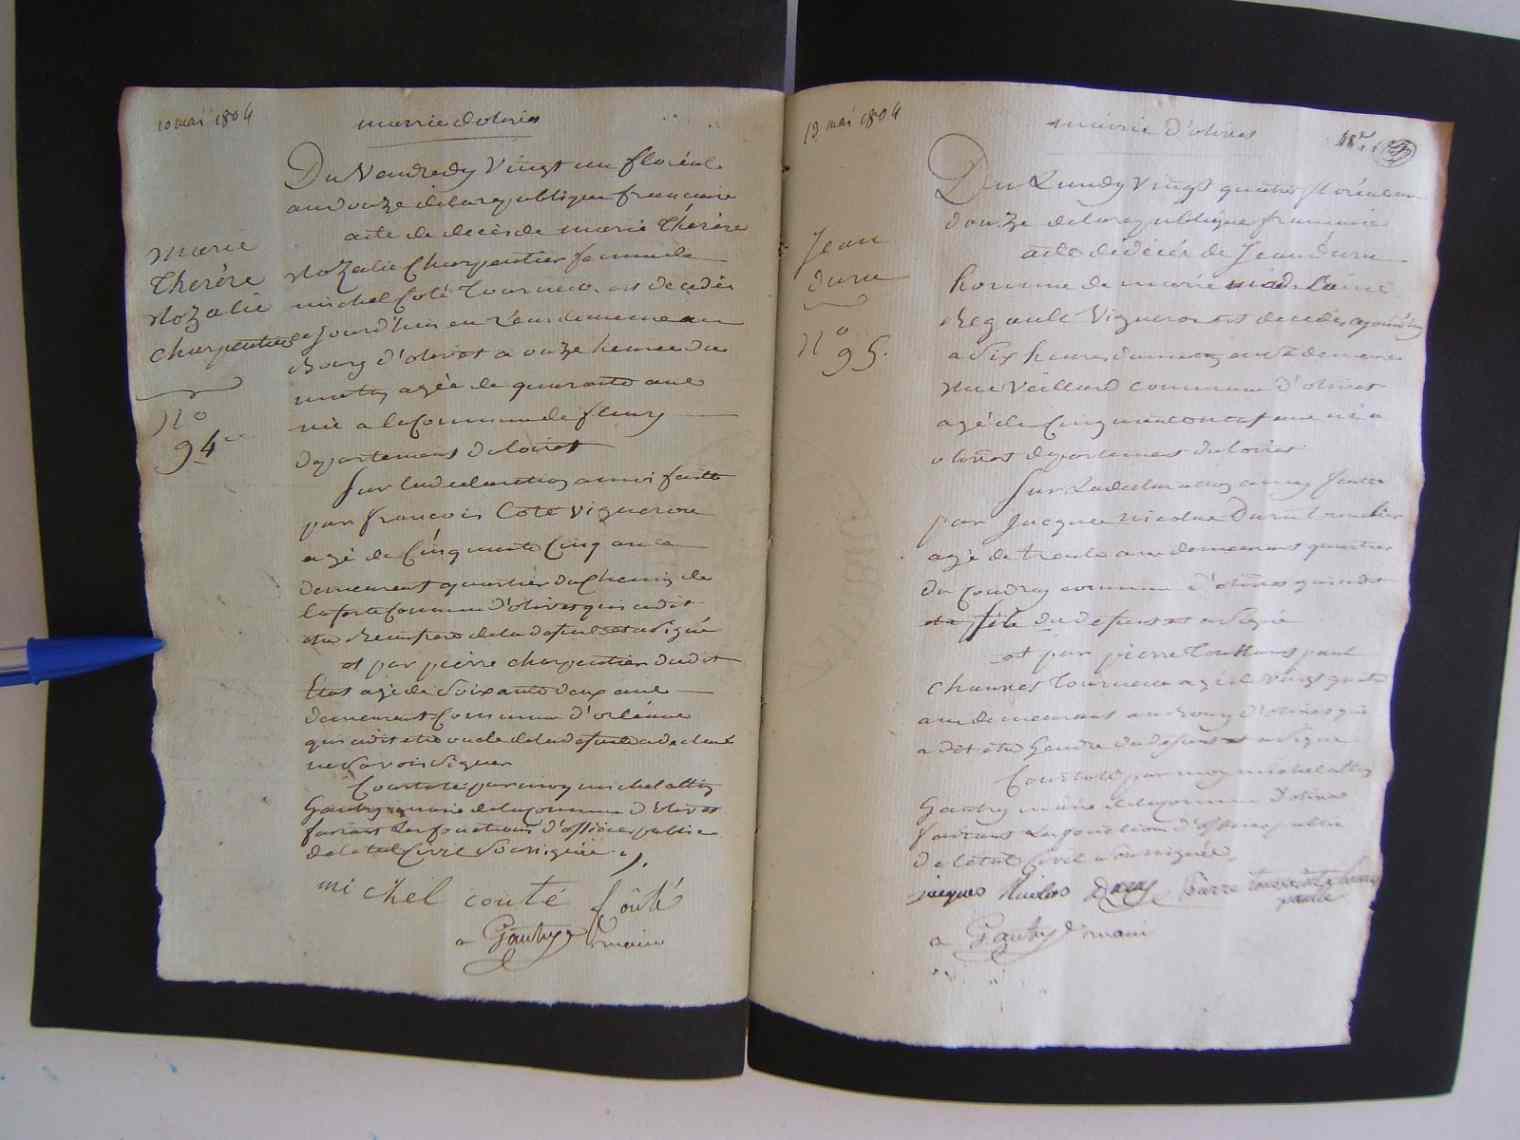 10 mai 1804
mairie d'olivet
Du Vendredy Vingt un floréal
an douze de la republique francaise
acte de decès de marie Thérèse
Rozalie Charpentier femme de
michel Coté Tourneux est decedée
ajourd'huy en sa demeure au
Bourg d'olivet a onze heures du
matin agée de quarante ans
née a la Commune de fleury
departement du loiret
Sur la declaration a moi faitte
par francois Coté Vigneron
agé de Cinquante Cinq ans
demeurant quartier du Chemin de
la ferté Commune d'olivet qui a dit
etre Beaufrere de la defunte et a signé
et par pierre charpentier dudit
Etat agé de Soixante deux ans
demeurant Commune d'orléans
qui a dit etre oncle de la defunte a declaré
ne Savoir Signer
Constaté par moy michel
Gautry maire de la Commune d'olivet
faisant les fonctions d'officier public
de letat Civil Soussigné
michel couté Couté
Gautry maire
Marie
Thérèse
Rozalie
Charpentier
No
94
13 mai 1804
mairie d'olivet
Du Lundy Vingt quatre floréal an
douze de la republique francaise
acte de décès de Jean duru
homme de marie madelaine
Regault Vigneron est decedé ajourd'huy
a Six heures du matin en sa demeure
Rue Veillard commune d'olivet
agé de Cinquante ans né a
olivet departement du loiret
Sur la declaration a moy faitte
par Jacque nicolas Duru
agé de trente ans demeurant quartier
du Coudray commune d'olivet qui a dit
etre fils du defunt et a signé
et par pierre Toussaint paul
Tourneux agé de Vingt quatre
ans demeurant au Bourg d'olivet qui
a dit etre Gendre du defunt et a signé
Constaté par moy michel
Gautry maire de la commune d'olivet
faisant les fonctions d'officier public
de l'état Civil Soussigné
jacques Nicolas Duru Pierre Toussaint
paul
Gautry maire
Jean
duru
No
95.